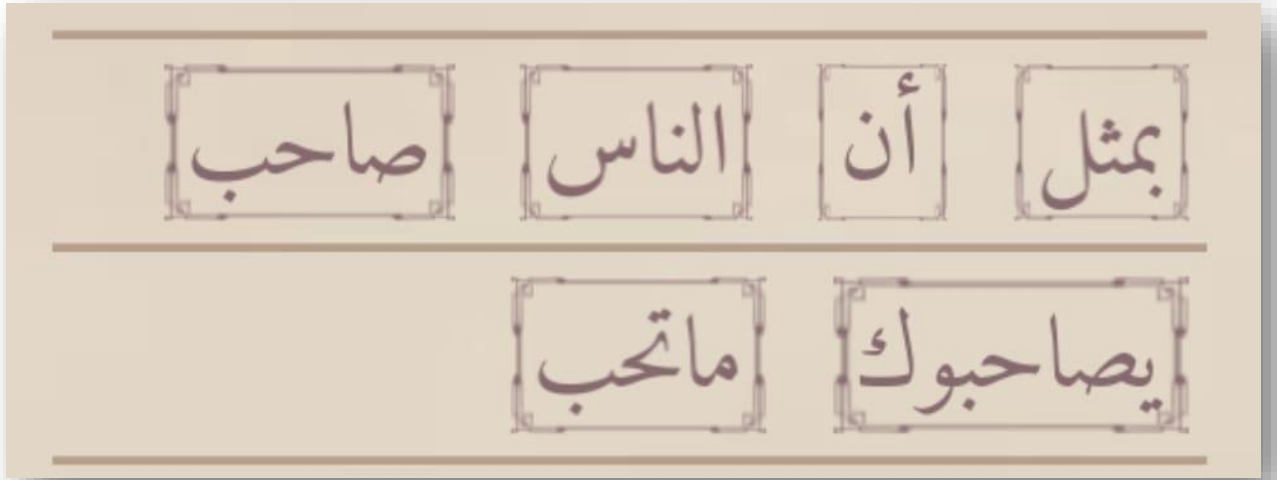 بمثل أن الناس صاحب
يصاحبوك ماتحب